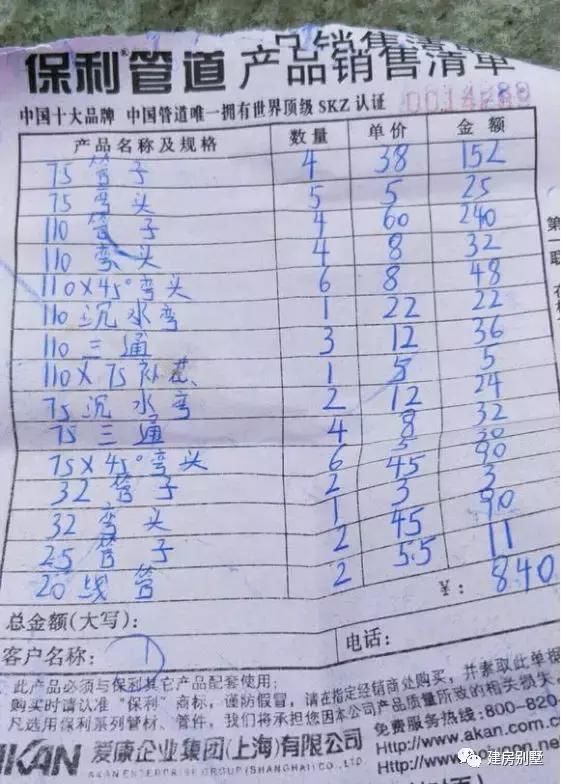 保利®管道 产品销售清单
中国十大品牌 中国管道唯一拥有世界顶级 SKZ 认证
产品名称及规格 数量 单价 金额
75 管子 4 38 152
75 弯头 5 5 25
110 管子 4 60 240
110 弯头 4 8 32
110×45°弯头 6 8 48
110 沉水弯 1 22 22
110 三通 3 12 36
110×75 补芯 1 5 5
75 沉水弯 2 12 24
75 三通 4 8 32
75×45°弯头 6 5 30
32 管子 2 45 90
32 弯头 1 3 3
25 管子 2 45 90
20 线管 2 5.5 11
¥: 840
总金额(大写):
客户名称: 电话:
此产品必须与保利其它产品配套使用;
购买时请认准“保利”商标，谨防假冒，请在指定经销商处购买，并索取此单据
凡选用保利系列管材、管件，我们将承担您因本公司产品质量所致的相关损失
AKAN 爱康企业集团(上海)有限公司
AKAN ENTERPRISE GROUP (SHANGHAI) CO., LTD.
免费服务热线:800-820-
Http://www.akan.com.c
Http://www.
第一联
建房别墅